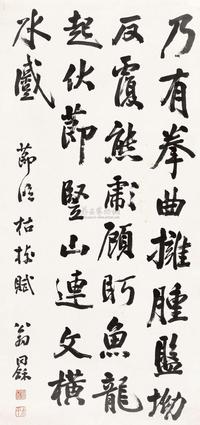 乃有拳曲擁腫盤坳
反覆熊彪顧盼魚龍
起伏節竪山連文橫
水蹙
節臨枯樹賦
翁同龢